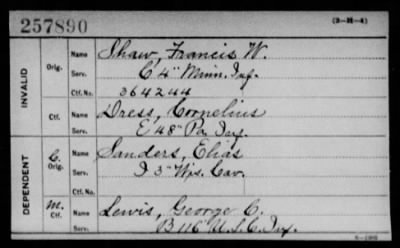 257890
(3-21-4)
INVALID
Orig.
Name Shaw, Francis W.
Serv. C 4" Minn. Inf.
Ctf. No. 364244
Ctf.
Name Dress, Cornelius
Serv. E 48" Pa. Inf.
DEPENDENT
C. Orig.
Name Sanders, Elias
Serv. I 3" Wis. Cav.
Ctf. No.
M. Ctf.
Name Lewis, George C.
Serv. B 116 U.S.C. Inf.